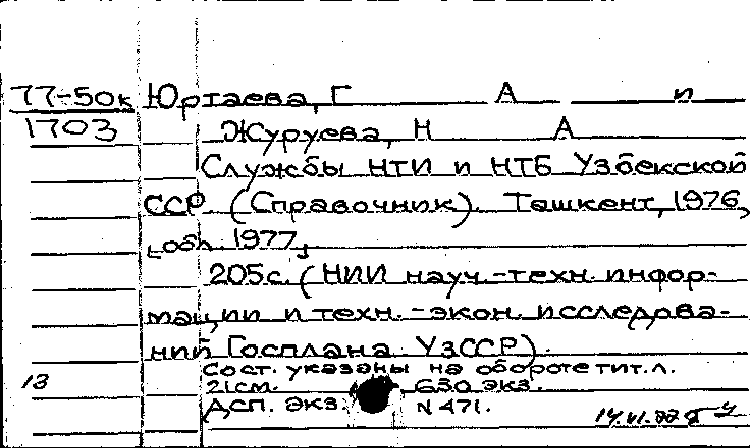 77-50к Юртаева, Г А и
1703 Журуева, Н А
Службы НТИ и НТБ Узбекской
ССР. (Справочник). Ташкент, 1976,
[обл. 1977]
205с. (НИИ науч.-техн. инфор-
мации и техн.-экон. исследова-
ний Госплана УзССР).
Сост. указаны на обороте тит.л.
13 21см. 630 экз.
ДСП. Экз. N 471.